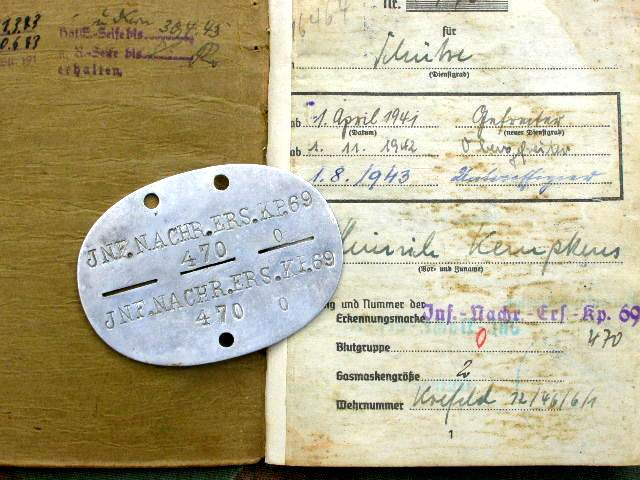 30.4.43
Haut-Seife bis
R.-Seife bis
erhalten.
JNF.NACHR.ERS.KP.69
470 O
JNF.NACHR.ERS.KP.69
470 O
Nr.
für
Schütze
(Dienstgrad)
ab 1. April 1941 Gefreiter
(Datum) (neuer Dienstgrad)
ab 1. 11. 1942 Obergefreiter
1.8./1943 Unteroffizier
Heinrich Kempkens
(Vor- und Zuname)
ng und Nummer der
Erkennungsmarke Inf.-Nachr.-Ers-Kp. 69
Blutgruppe 0 470
Gasmaskengröße 2
Wehrnummer Krefeld 12/46/6/1
1